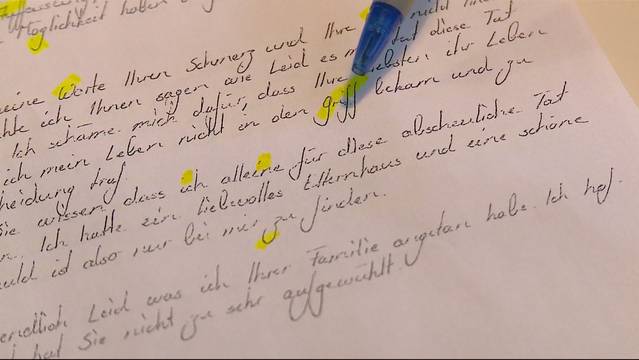 Möglichkeit haben
eine Worte Ihren Schmerz und Ihre nicht
ich Ihnen sagen wie Leid es mir tut diese Tat
Ich schäme mich dafür, dass Ihre liebsten ihr Leben
ich mein Leben nicht in den griff bekam und zu
heidung traf.
Sie wissen dass ich alleine für diese abscheuliche Tat
Ich hatte ein liebevolles Elternhaus und eine schöne
uld ist also nur bei mir zu finden.
endlich Leid was ich Ihrer Familie angetan habe. Ich hof
hat Sie nicht zu sehr aufgewühlt.